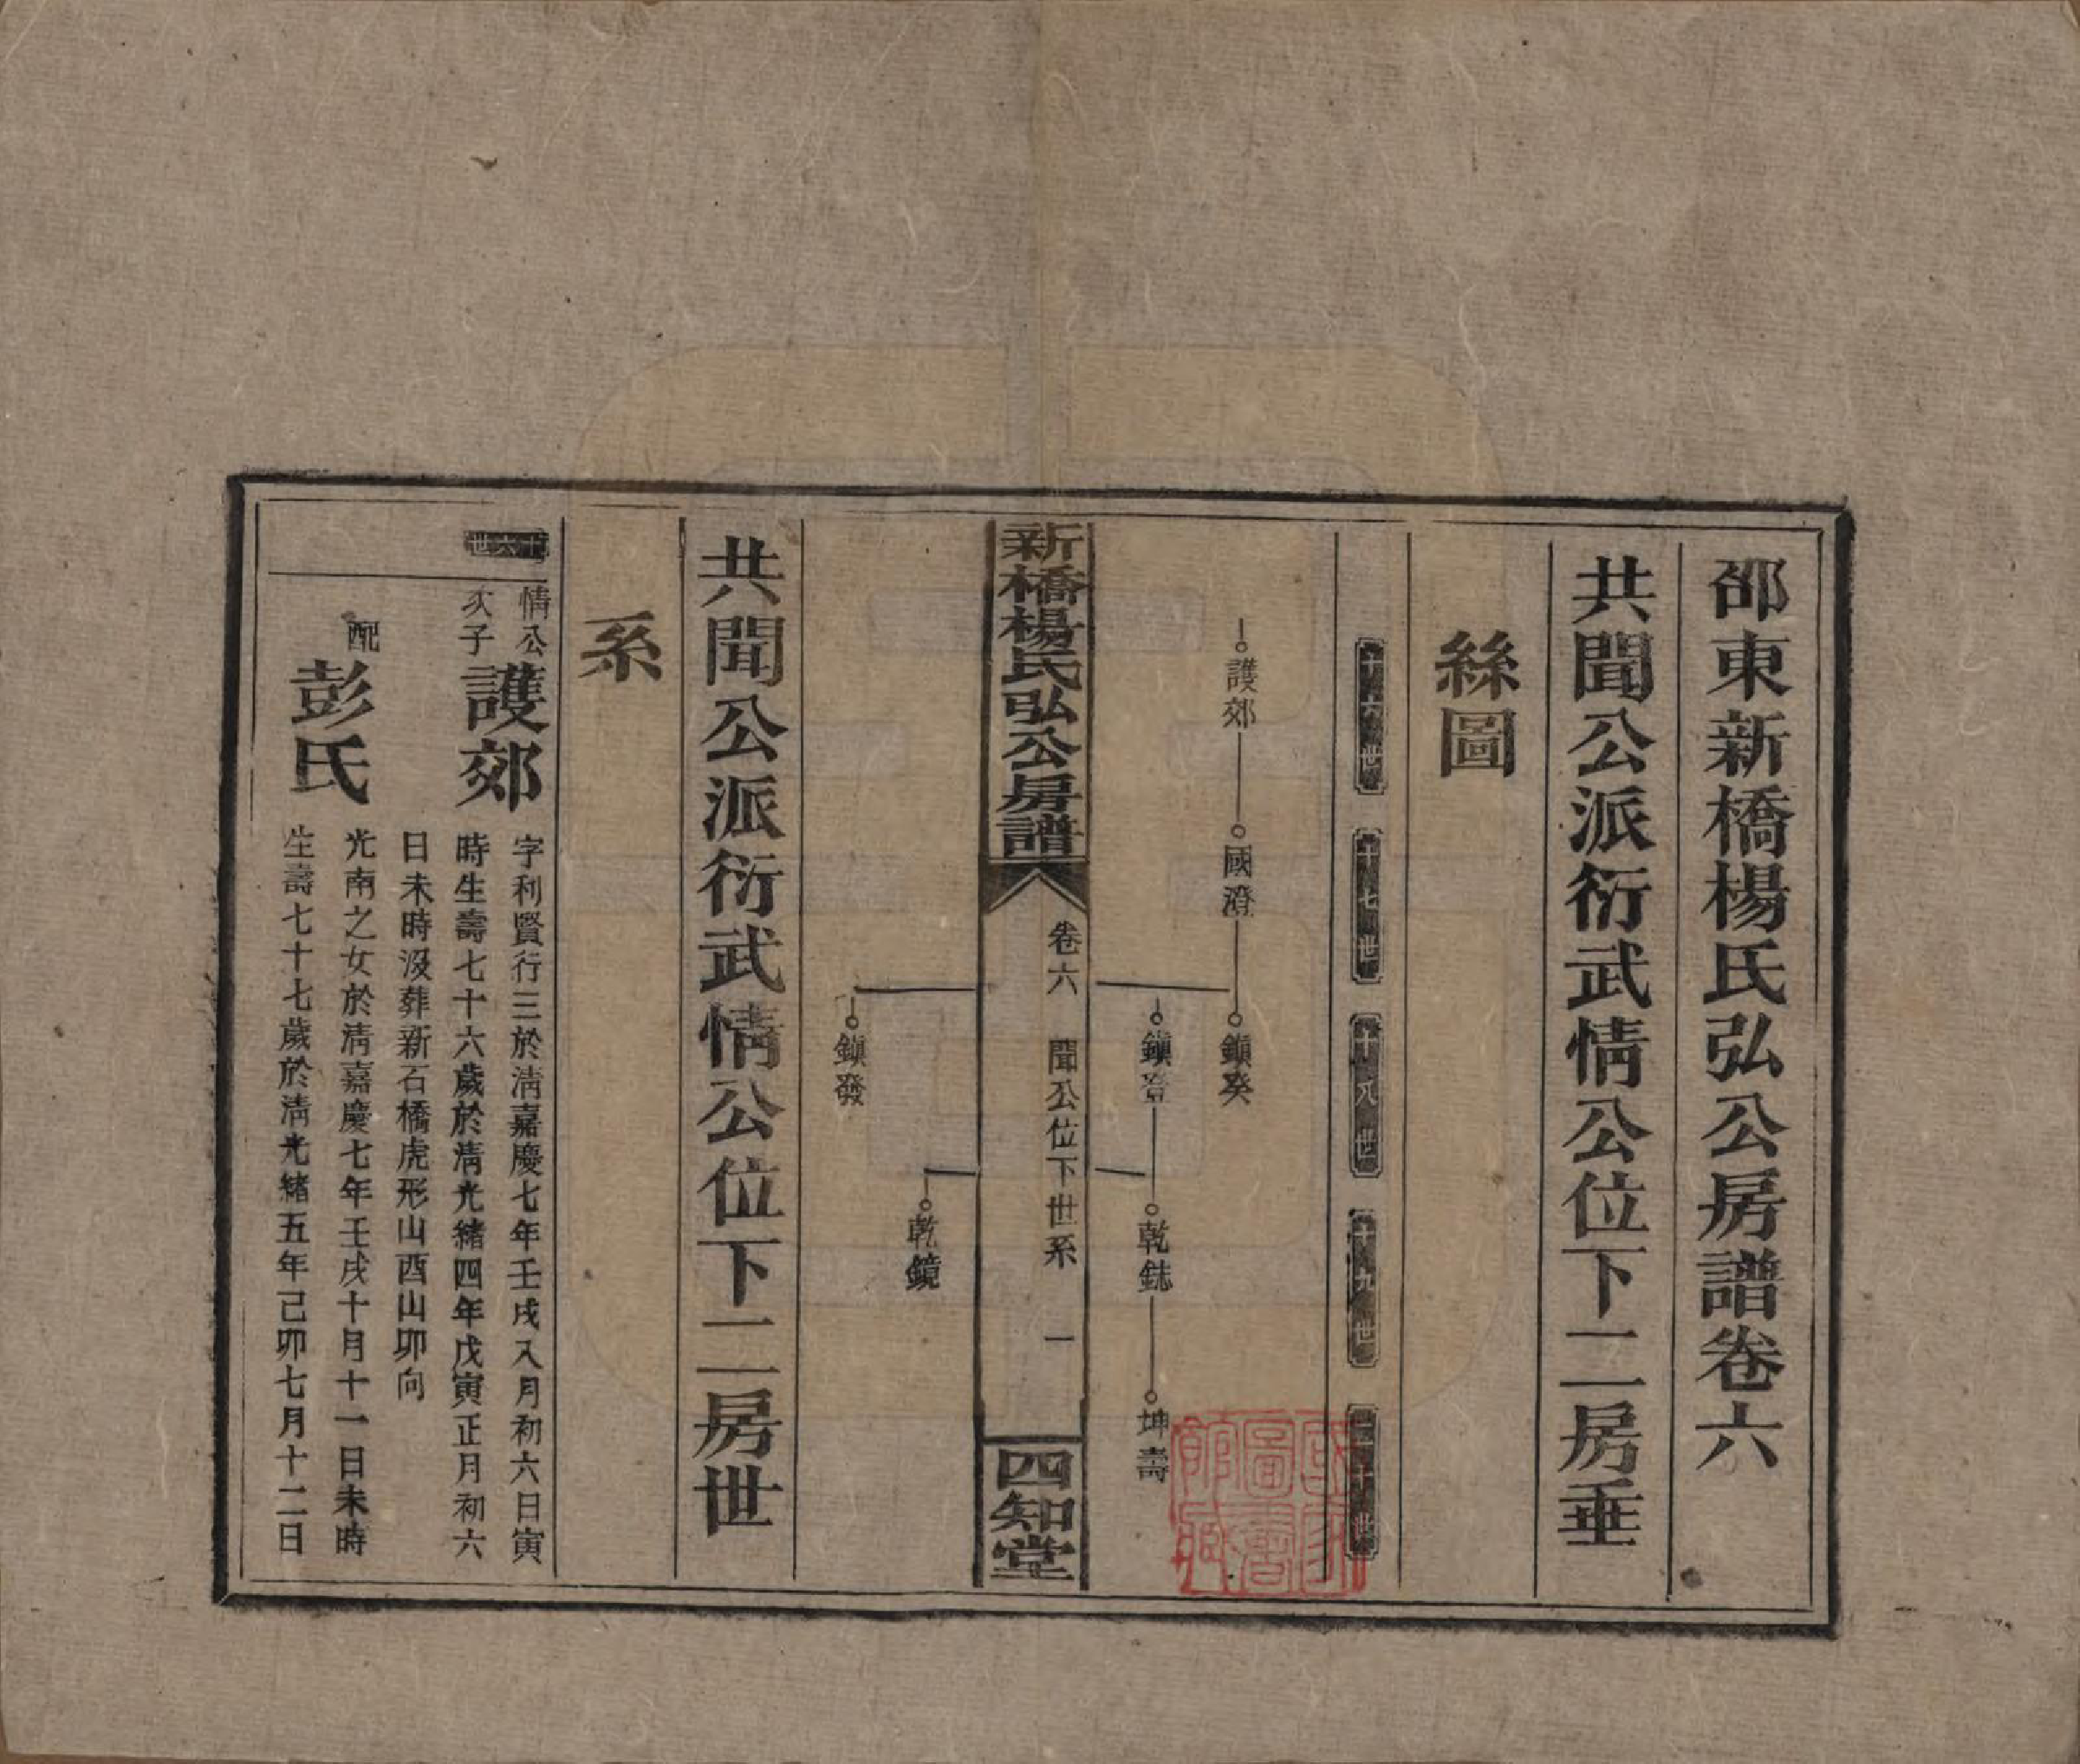 邵東新橋楊氏弘公房譜卷六
共聞公派衍武情公位下二房垂
絲圖
十六世
十七世
十八世
十九世
二十世
護郊
國澄
鎭癸
鎭登
乾銤
坤壽
國家圖書館藏
新橋楊氏弘公房譜
卷六
聞公位下世系
一
四知堂
乾鏡
鎭發
共聞公派衍武情公位下二房世
系
十六世
情公
次子
護郊
字利賢行三於淸嘉慶七年壬戌八月初六日寅
時生壽七十六歲於淸光緒四年戊寅正月初六
日未時沒葬新石橋虎形山酉山卯向
配
彭氏
光南之女於淸嘉慶七年壬戌十月十一日未時
生壽七十七歲於淸光緒五年己卯七月十二日